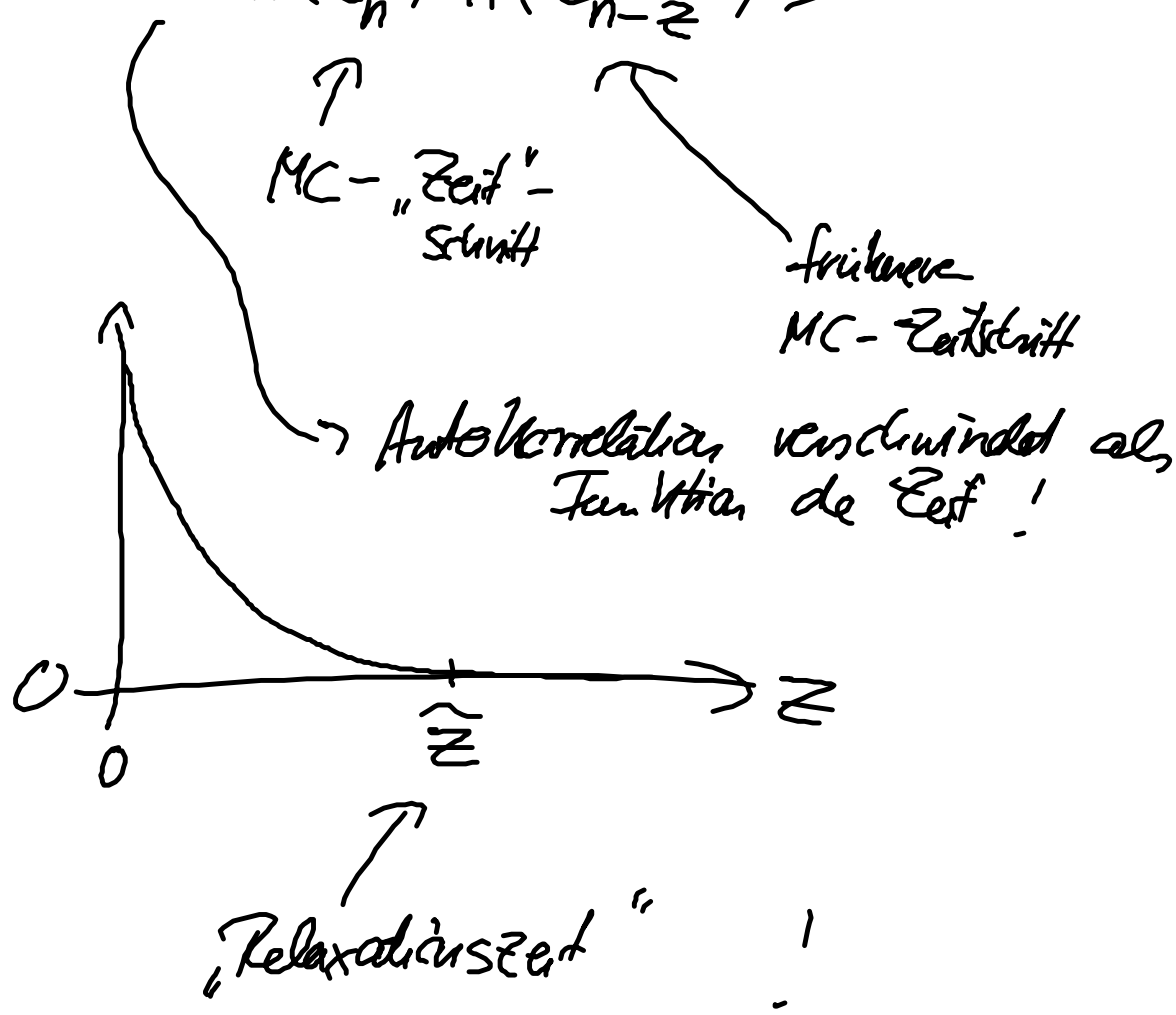 MC-„Zeit"-
schritt
frühere
MC-Zeitschritt
Autokorrelation verschwindet als
Funktion de Zeit !
0
z
0
z̃
„Relaxationszeit" !